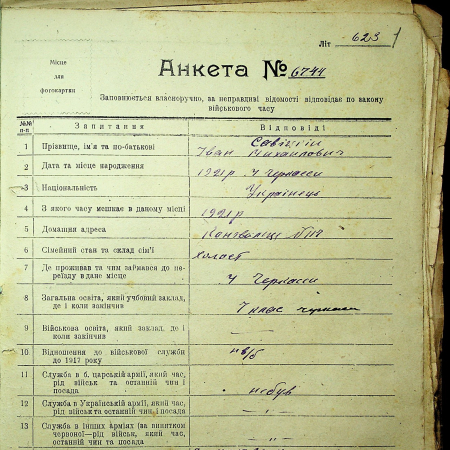 Літ 623
Місце
для
фотокартки
Анкета № 6744
Заповнюється власноручно, за неправдиві відомості відповідає по закону
військового часу
№№ п-п Запитання Відповіді
1 Прізвище, ім'я та по-батькові Іван Михайлович
2 Дата та місце народження 1921р м Черкаси
3 Національність Українець
4 З якого часу мешкає в даному місці 1921р
5 Домашня адреса №
6 Сімейний стан та склад сім'ї холост
7 Де проживав та чим займався до пе-
реїзду в дане місце м Черкаси
8 Загальна освіта, який учбовий заклад,
де і коли закінчив 7 клас Черкаси
9 Військова освіта, який заклад, де і
коли закінчив
10 Відношення до військової служби
до 1917 року
11 Служба в б. царській армії, який час,
рід військ та останній чин і
посада не був
12 Служба в Українській армії, який час,
рід військ та останній чин і посада
13 Служба в інших арміях (за винятком
червоної—рід військ, який час,
останній чин та посада